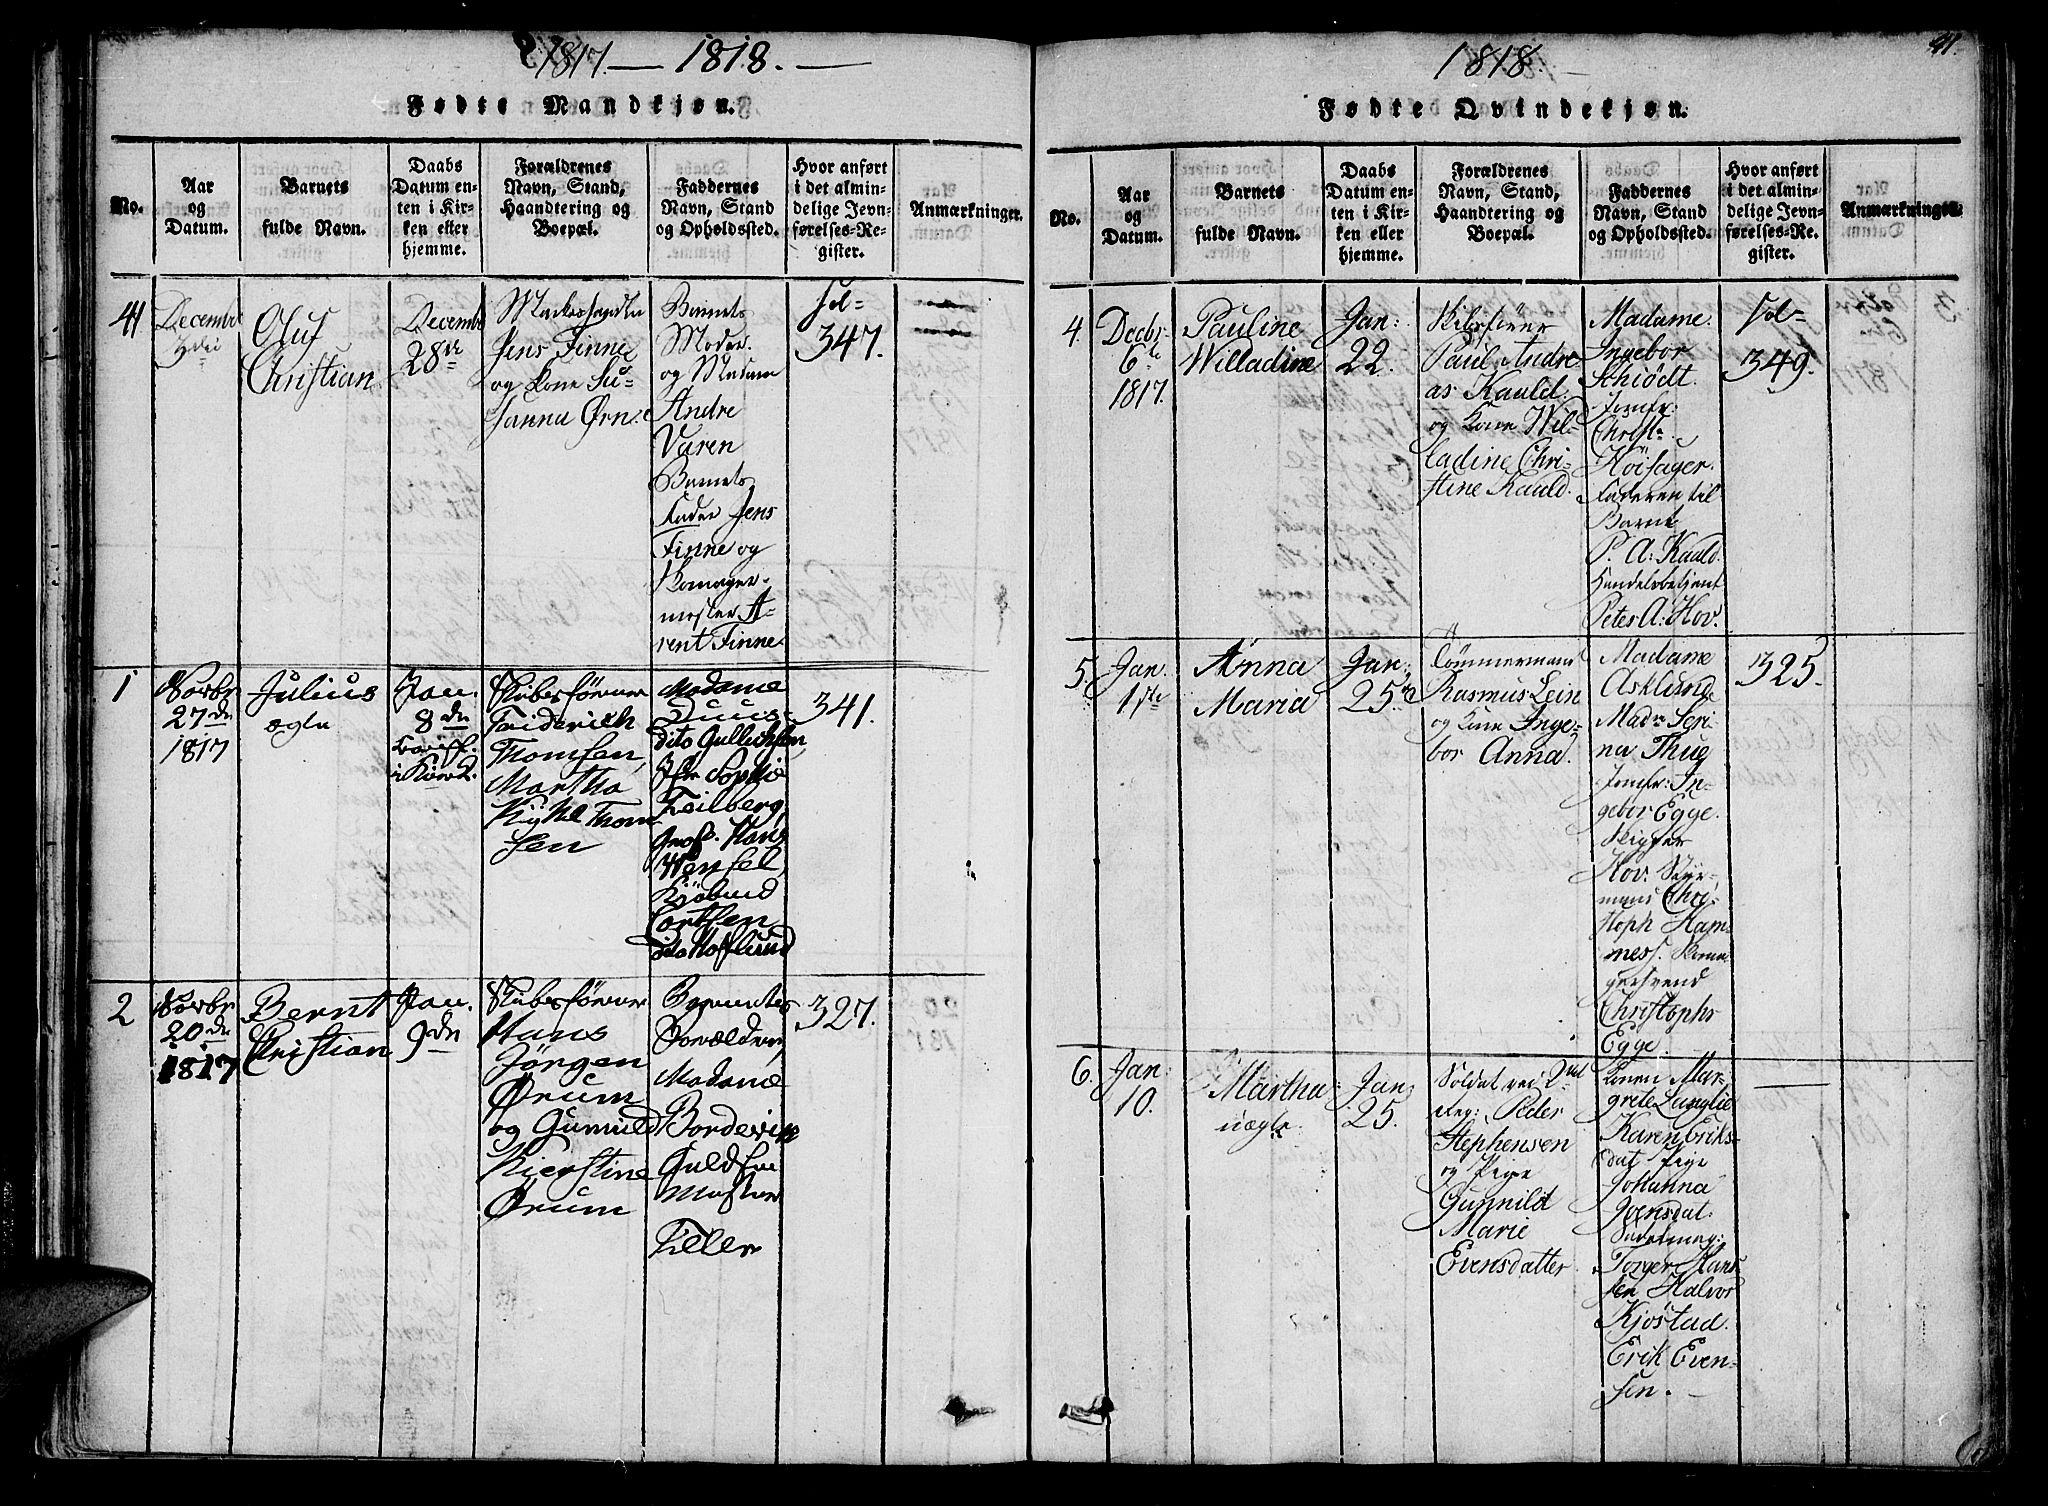 1817. — 1818. —
Fødte Mandkjøn.
No.
Aar
og
Datum.
Barnets
fulde Navn.
Daabs
Datum en-
ten i Kir-
ken eller
hjemme.
Forældrenes
Navn, Stand,
Haandtering og
Boepæl.
Faddernes
Navn, Stand
og Opholdssted.
Hvor anført
i det almin-
delige Jevn-
førelses-Re-
gister.
Anmærkninger.
41
December
Oluf
Christian
December
28de
Jens Finne
og Kone Su-
sanna Ørn.
Barnets
Moder
og Madam
Andre
Varen
Barnets
Fader Jens
Finne og
mester A-
rent Finne.
Fol-
347.
1
Novbr
27de
1817
Julius
ægte
Jan.
8de
Skibsfører
Friderich
Thomsen,
Martha
Thom-
sen
Madame
Duus
dito
Jfr Sophie
Feilberg
Hans
Wensel
Corthsen
dito Hofflund
341.
2
Novbr
20de
1817
Bernt
Christian
Jan.
9de
Skibsfører
Hans
Jörgen
Ørum
og Gunnild
Kierstine
Ørum
Forældre,
Madame
Borderviin
Guldsme
Mester
Tiller
327.
1818.
41.
Fødte Qvindekjøn.
No.
Aar
og
Datum.
Barnets
fulde Navn.
Daabs
Datum en-
ten i Kir-
ken eller
hjemme.
Forældrenes
Navn, Stand,
Haandtering og
Boepæl.
Faddernes
Navn, Stand
og Opholdssted.
Hvor anført
i det almin-
delige Jevn-
førelses-Re-
gister.
Anmærkninger.
4.
Decbr
6te
1817.
Pauline
Willadine
Jan:
22.
Skibsfører
Paul Andre-
as Kauld.
og Kone Wil-
ladine Chri-
stine Kauld.
Madame.
Ingebor
Schiödt.
Jomfr:
Christ.
Höisager.
Faderen til
Barnet
P. A: Kauld.
Handelsbetjent
Peter A: Hov.
Fol-
349.
5.
Jan.
1ste
Anna
Maria
Jan:
25de
Tømmermand
Rasmus Lein
og Kone Inge-
bor Anna.
Madame
Asklund
Madm Seri-
na Thue
Jomfr: In-
gebor Egge.
Skipper
Hov. Styr-
mand Chri-
stoph Ham-
mes.
svend
Christopher
Egge.
325.
6.
Jan:
10.
Martha
uægte.
Jan:
25.
Soldat ved 2det
Reg: Peder
Stephensen
og Pige
Gunnild
Marie
Evensdatter
Konen Mar-
grete
Karen Eriks-
dat Pige
Johanna
Joensdat.
Torger Hans-
sen Halvor
Kjöstad.
Erik Even-
sen.